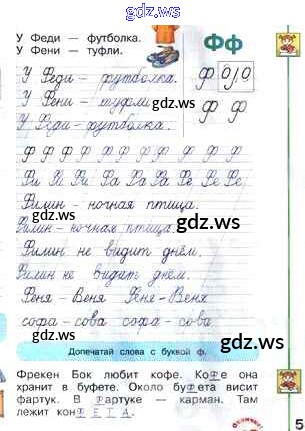 У Феди — футболка.
У Фени — туфли.
Ф ф
У Феди – футболка.
У Фени – туфли
У Феди – футболка.
gdz.ws
ф ф ф ф ф ф ф ф ф ф
Фи Фи Фи Фа Фа Фа Фе Фе Фе
Филин – ночная птица.
Филин – ночная птица.
gdz.ws
gdz.ws
Филин не видит днём.
Филин не видит днём.
Феня – Веня Феня – Веня
софа – сова софа – сова
gdz.ws
Допечатай слова с буквой ф.
Фрекен Бок любит кофе. Кофе она
хранит в буфете. Около буфета висит
фартук. В фартуке — карман. Там
лежит конФЕТА.
gdz.ws
ОТЛИЧНО!
5